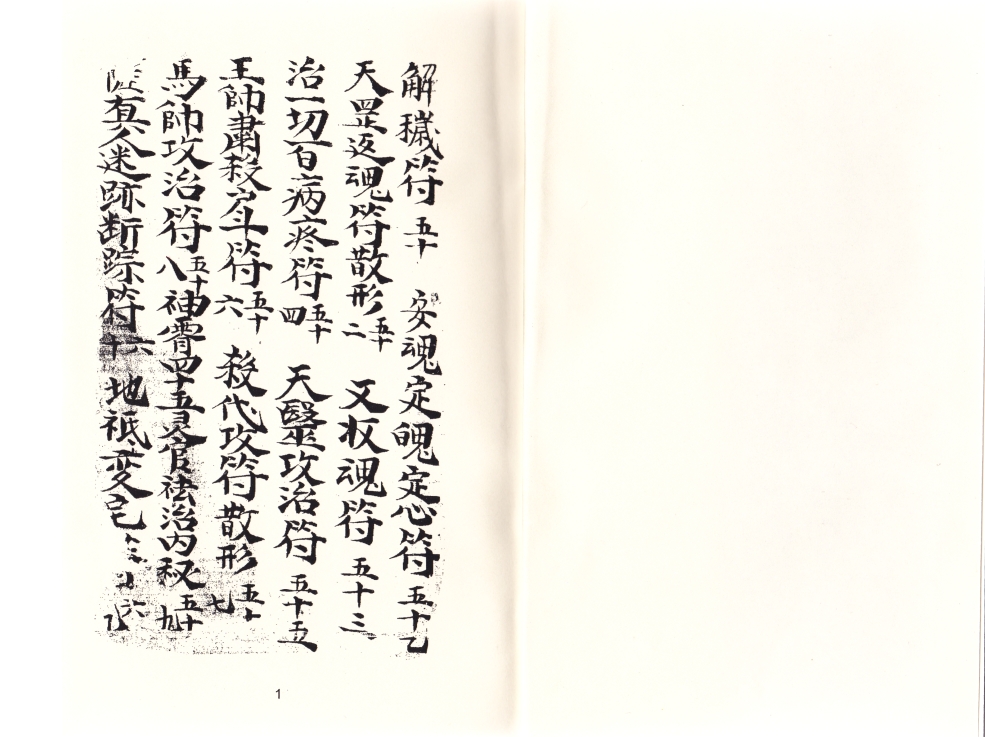 解穢符 五十 安魂定魄定心符 五十乙
天罡返魂符散形 五十二 又收魂符 五十三
治一切百病疼符 五十四 天醫攻治符 五十五
王帥肅殺斗符 五十六 殺伐攻符散形 五十七
馬帥攻治符 五十八 神霄四十五灵官祛治内秘 五十九
真人迷跡断踪符 六十 地祇变 六
1